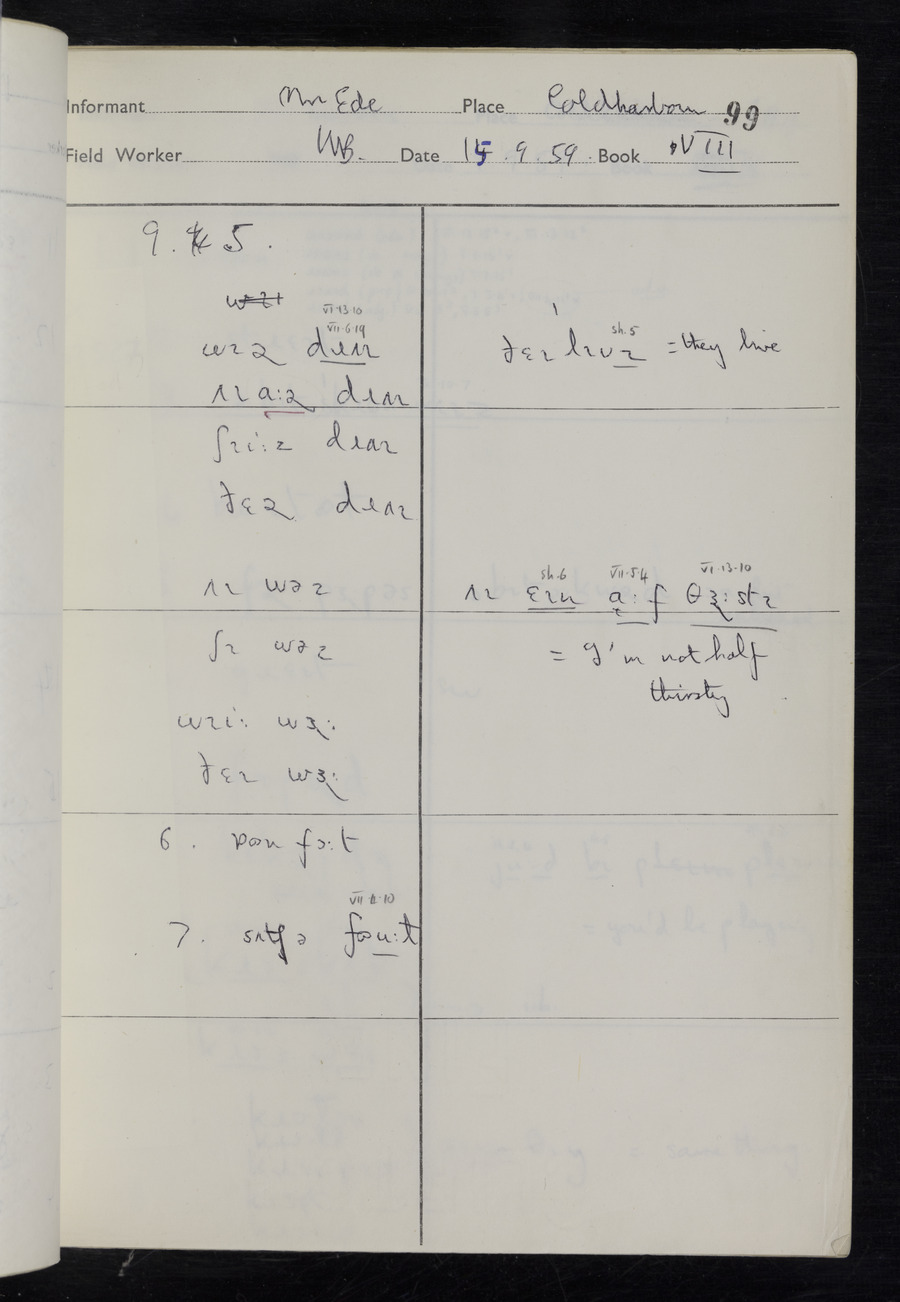 Informant Mr Ede Place Coldharbour 99
Field Worker WB. Date 15.9.59. Book VIII
9. 5.
VI·13·10
VII·6·19
wɪə dɪʌɪ
ʃɪi:ɪ dɪʌɪ
ðɛə dɪʌɪ
ʌɪ wəz
ʃɪ wəz
wɪi: wɜ:
ðɛɪ wɜ:
6. ɒən fɔ:t
VII·2·10
7.
sh.5
ðɛɪ lɪvz = they live
sh.6 VII·5·4 VI·13·10
ʌɪ ɛɪn ɑ:f θɜ:stɪ
= I'm not half
thirsty